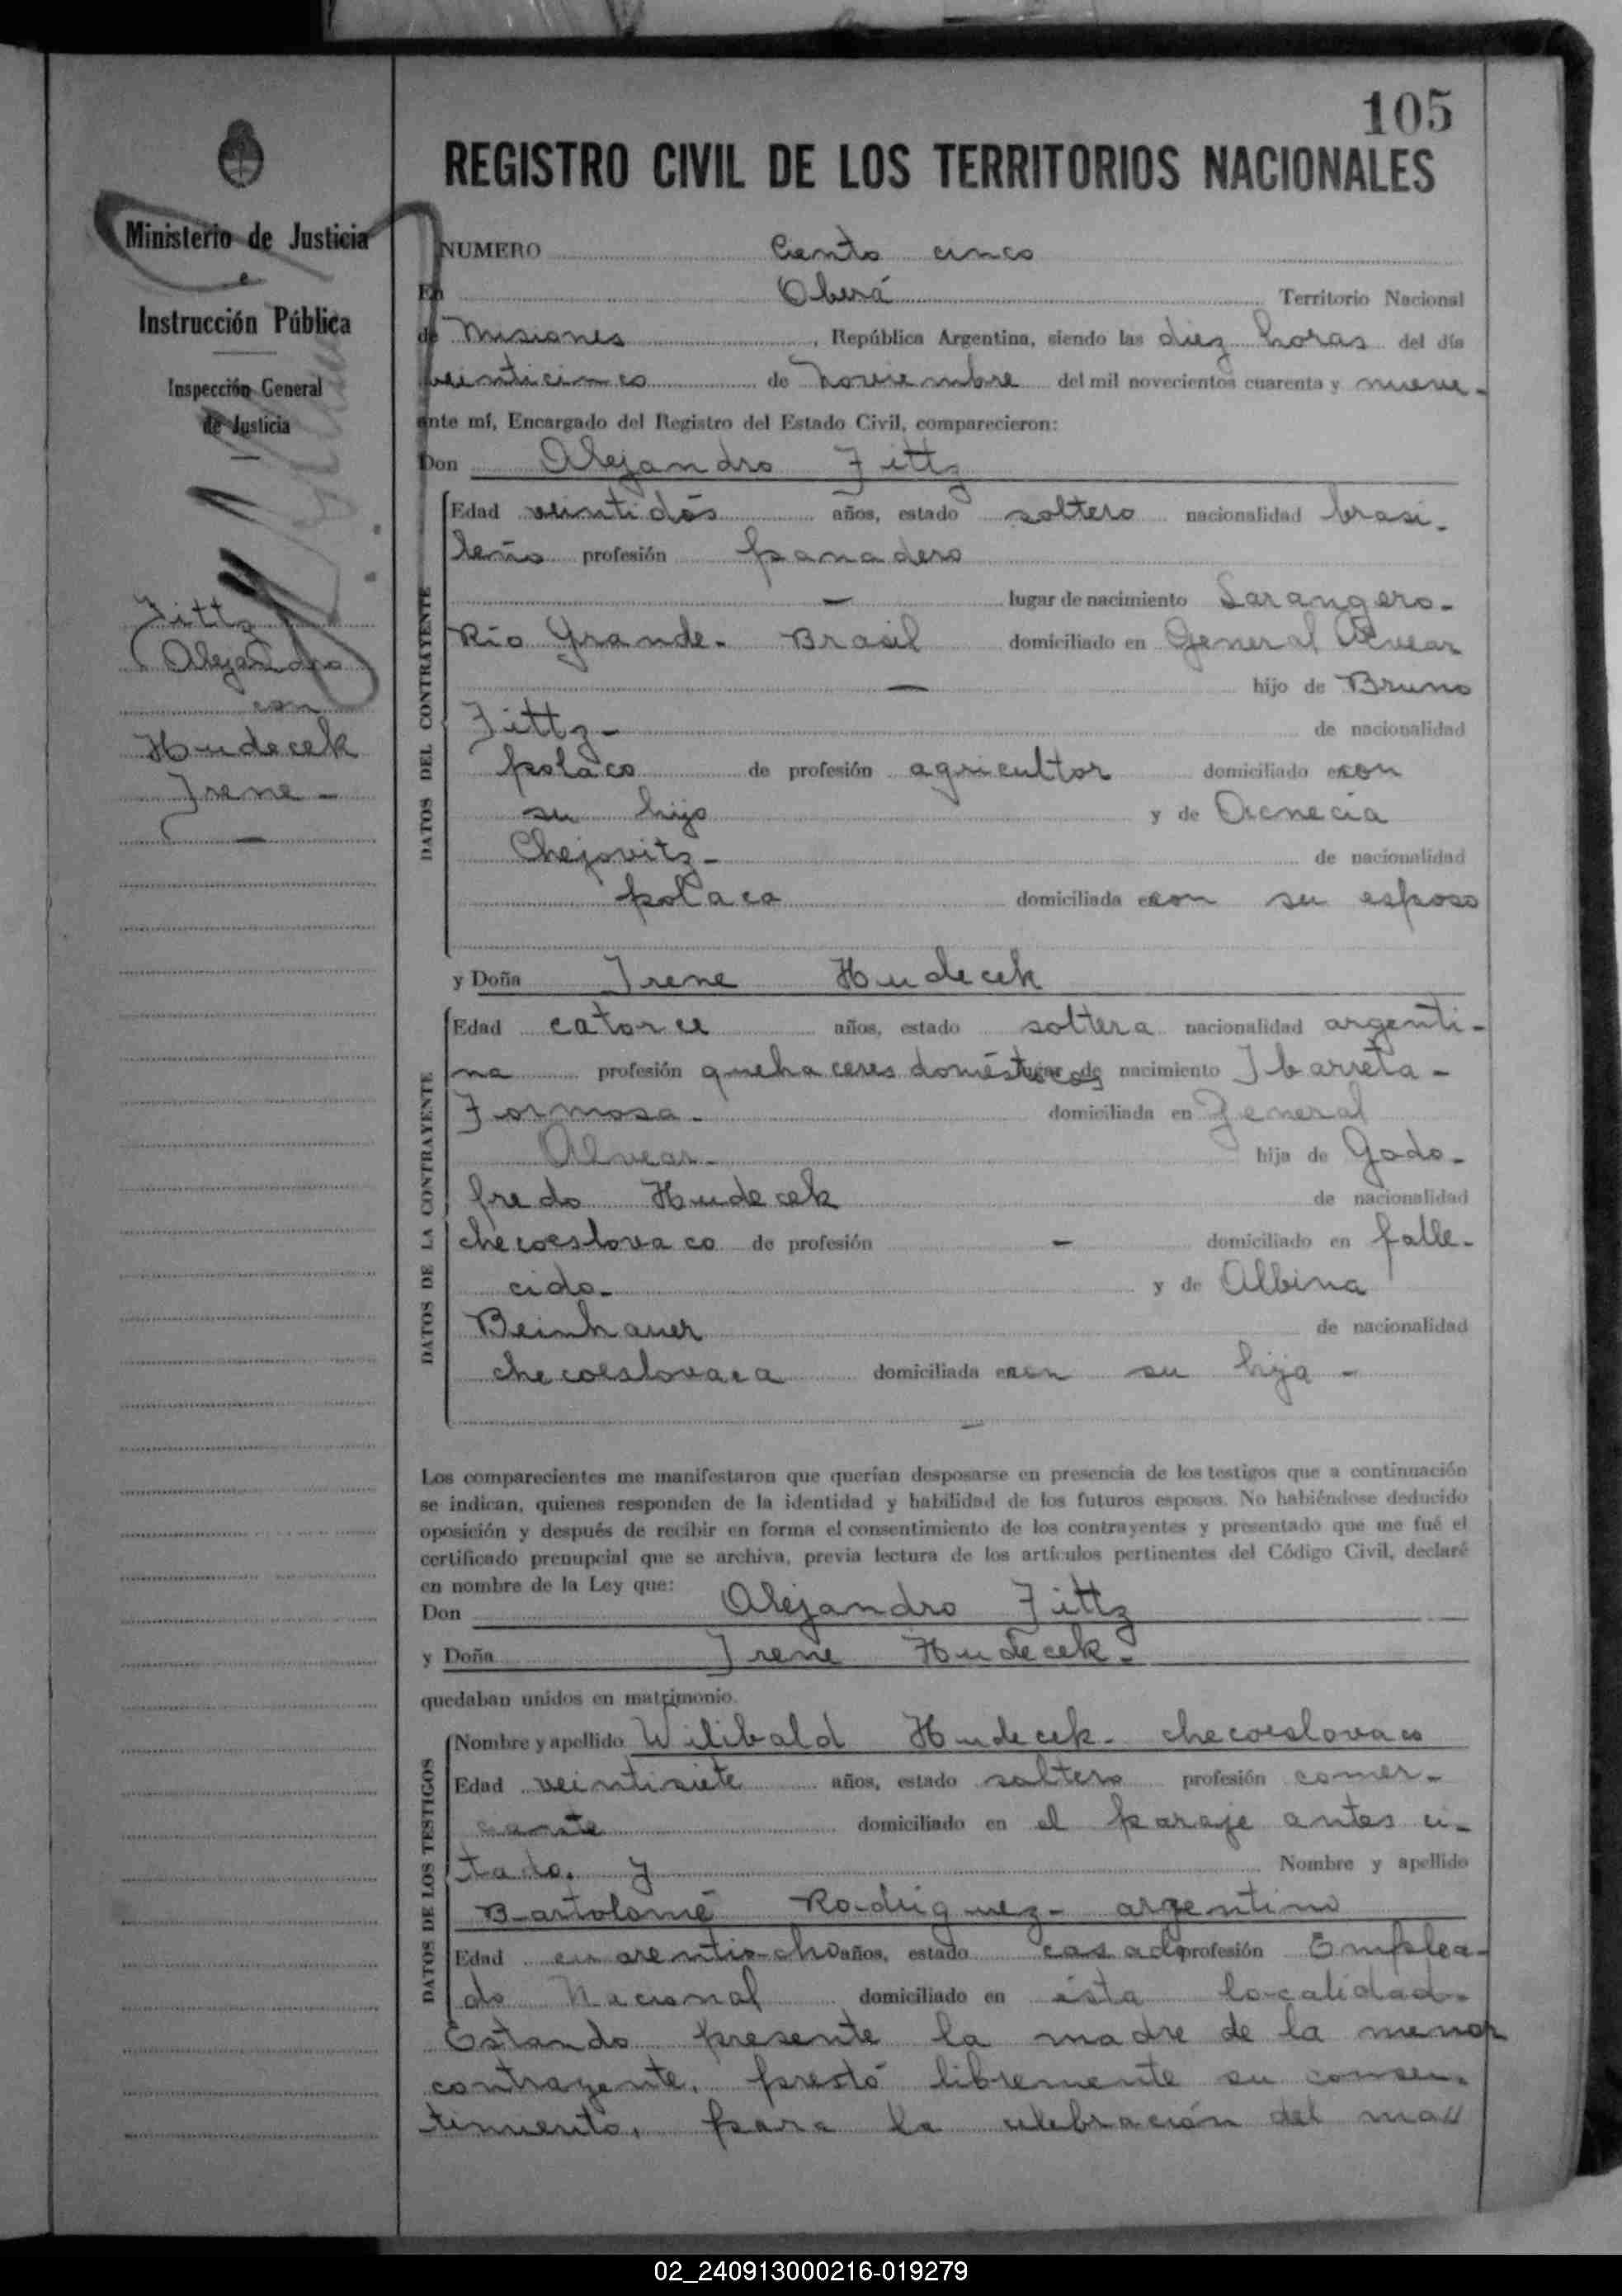 105
REGISTRO CIVIL DE LOS TERRITORIOS NACIONALES
Ministerio de Justicia
e
Instrucción Pública
Inspección General
de Justicia
Fittz
Alejandro
con
Hudecek
Irene -
NUMERO Ciento cinco
En Oberá Territorio Nacional
de Misiones, República Argentina, siendo las diez horas del día
veinticinco de noviembre del mil novecientos cuarenta y nueve-
ante mí, Encargado del Registro del Estado Civil, comparecieron:
Don Alejandro Fittz
DATOS DEL CONTRAYENTE
Edad veintidós años, estado soltero nacionalidad brasi-
leño profesión panadero
- lugar de nacimiento Sarangero-
Río Grande- Brasil domiciliado en General Alvear
- hijo de Bruno
Fittz- de nacionalidad
polaco de profesión agricultor domiciliado con
su hijo y de Acnecia
Chejovitz- de nacionalidad
polaca domiciliada con su esposo
y Doña Irene Hudecek
DATOS DE LA CONTRAYENTE
Edad catorce años, estado soltera nacionalidad argenti-
na profesión quehaceres domésticos lugar de nacimiento Ibarreta-
Formosa- domiciliada en General
Alvear- hija de Godo-
fredo Hudecek de nacionalidad
checoeslovaco de profesión - domiciliado en falle-
cido- y de Albina
Beinhauer de nacionalidad
checoeslovaca domiciliada con su hija -
-
Los comparecientes me manifestaron que querían desposarse en presencia de los testigos que a continuación
se indican, quienes responden de la identidad y habilidad de los futuros esposos. No habiéndose deducido
oposición y después de recibir en forma el consentimiento de los contrayentes y presentado que me fué el
certificado prenupcial que se archiva, previa lectura de los artículos pertinentes del Código Civil, declaré
en nombre de la Ley que:
Don Alejandro Fittz
y Doña Irene Hudecek-
quedaban unidos en matrimonio.
DATOS DE LOS TESTIGOS
Nombre y apellido Wilibald Hudecek- checoeslovaco
Edad veintisiete años, estado soltero profesión comer-
ciante domiciliado en el paraje antes ci-
tado, y Nombre y apellido
Bartolomé Rodríguez- argentino
Edad cuarentiocho años, estado casado profesión Emplea-
do Nacional domiciliado en ésta localidad-
Estando presente la madre de la menor
contrayente, prestó libremente su consen-
timiento, para la celebración del ma//
02_240913000216-019279